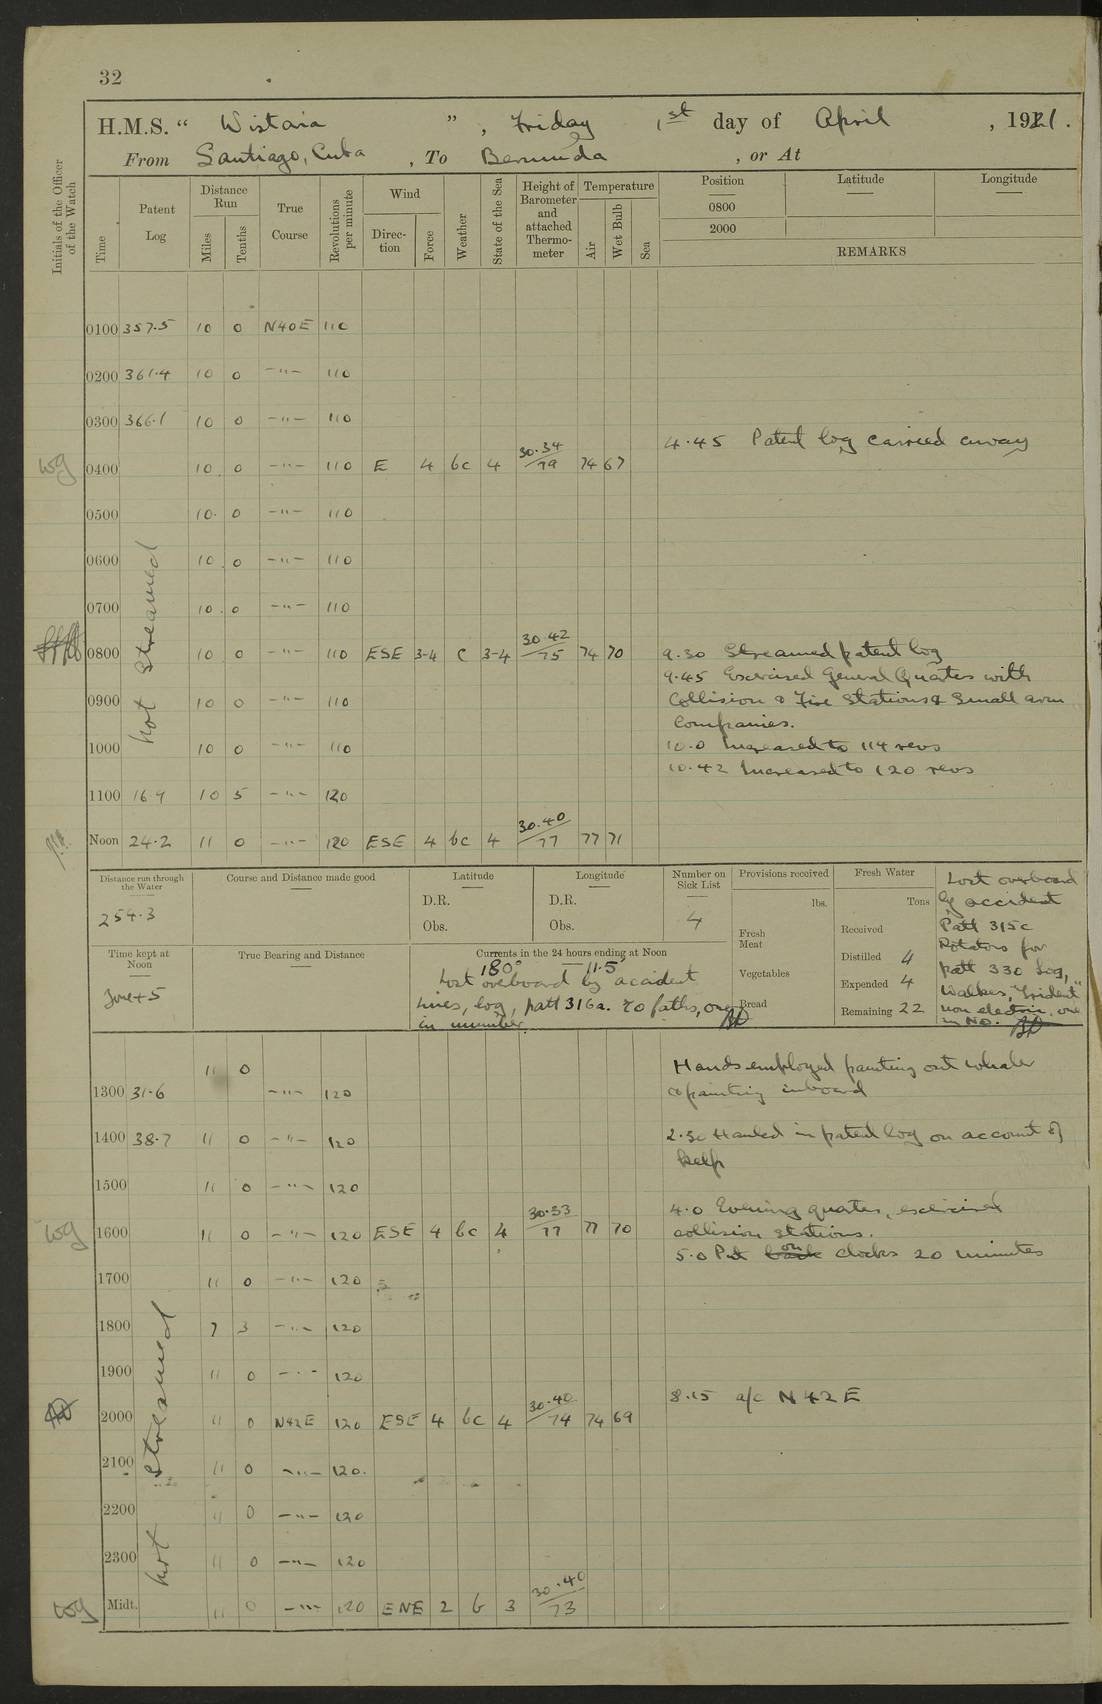 32
H.M.S. “ Wistaria ” , Friday 1st day of April , 1921 .
From Santiago, Cuba , To Bermuda , or At
Initials of the Officer of the Watch
Time
Patent Log
Distance Run
Miles Tenths
True Course
Revolutions per minute
Wind
Direc-tion Force
Weather
State of the Sea
Height of Barometer and attached Thermo-meter
Temperature
Air Wet Bulb Sea
Position Latitude Longitude
0800
2000
REMARKS
0100 357.5 10 0 N40E 110
0200 361.4 10 0 -"- 110
0300 366.1 10 0 -"- 110
4.45 Patent log carried away
0400 10 0 -"- 110 E 4 bc 4 30.34/79 74 67
0500 10 0 -"- 110
0600 10 0 -"- 110
0700 10 0 -"- 110
not streamed
0800 10 0 -"- 110 ESE 3-4 c 3-4 30.42/75 74 70
9.30 Streamed patent log
9.45 Exercised General Quarters with
0900 10 0 -"- 110
Collision & Fire Stations & Small arm
Companies.
1000 10 0 -"- 110
10.0 Increased to 114 revs
10.42 Increased to 120 revs
1100 16.9 10 5 -"- 120
Noon 24.2 11 0 -"- 120 ESE 4 bc 4 30.40/77 77 71
Distance run through the Water
254.3
Course and Distance made good
Latitude
D.R.
Obs.
Longitude
D.R.
Obs.
Number on Sick List
4
Provisions received
lbs.
Fresh Meat
Vegetables
Bread
Fresh Water
Tons
Received
Distilled 4
Expended 4
Remaining 22
Lost overboard
by accident
Patt 315c
Rotators for
patt 330 Log,
Walker, "Trident"
non electric, one
in No.
Time kept at Noon
Zone + 5
True Bearing and Distance
Currents in the 24 hours ending at Noon
180° — 11.5'
Lost overboard by accident
Lines, log, patt 316a. 70 faths, one
in number.
1300 31.6 11 0 -"- 120
Hands employed painting out whaler
& painting inboard
1400 38.7 11 0 -"- 120
2.30 Hauled in patent log on account of
kelp
1500 11 0 -"- 120
1600 11 0 -"- 120 ESE 4 bc 4 30.33/77 77 70
4.0 Evening quarters, exercised
collision stations.
5.0 Put back on clocks 20 minutes
1700 11 0 -"- 120
1800 7 3 -"- 120
1900 11 0 -"- 120
8.15 a/c N42E
2000 11 0 N42E 120 ESE 4 bc 4 30.40/74 74 69
2100 11 0 -"- 120
2200 11 0 -"- 120
2300 11 0 -"- 120
not streamed
Midt. 11 0 -"- 120 ENE 2 b 3 30.40/73